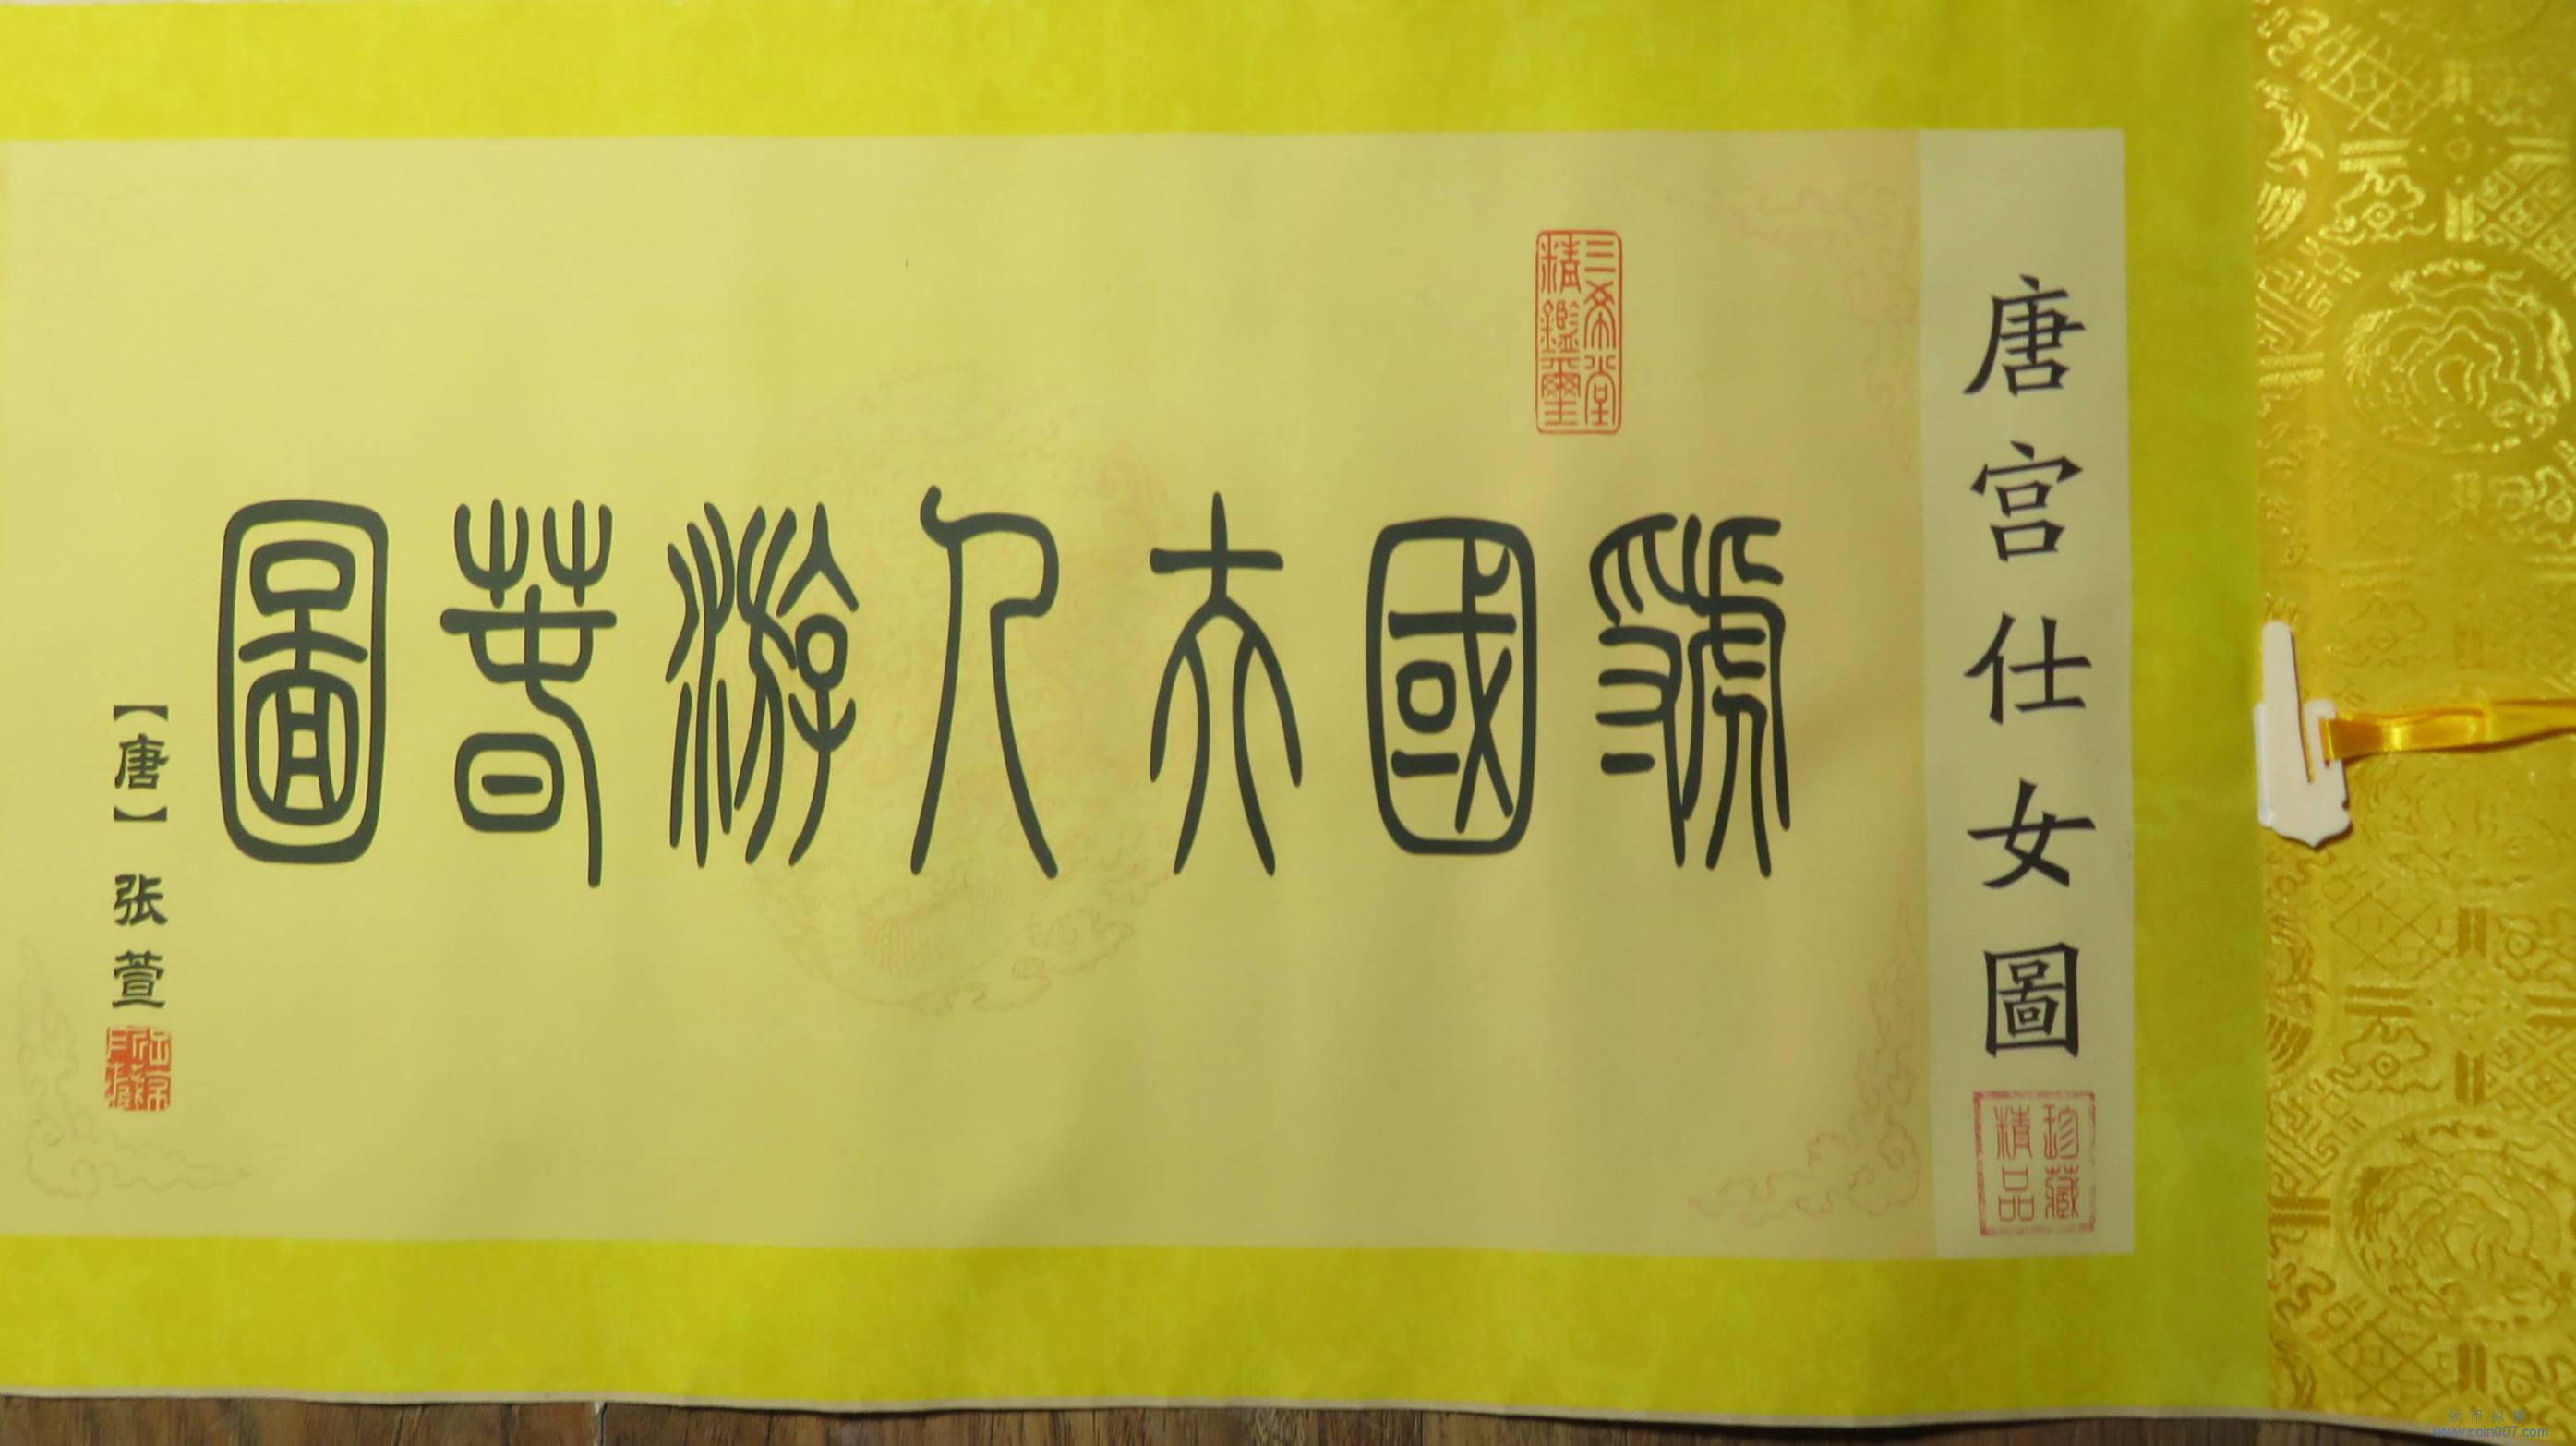 唐宫仕女圖
珍藏
精品
三希堂
精鑑璽
虢國夫人游春圖
【唐】张萱
www.coin007.com